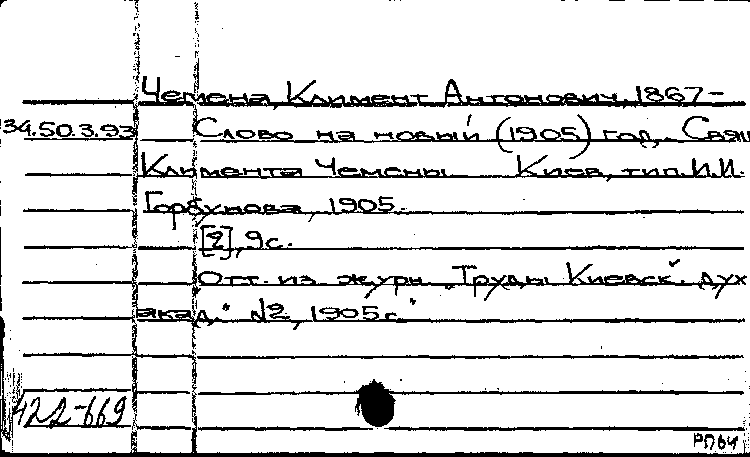 Чемена, Климент Антонович, 1867-
34.50.3.93 Слово на новый (1905) год, Свящ
Климента Чемены. Киев, тип. И.И.
Горбунова, 1905.
[2], 9 с.
Отт. из журн. „Труды Киевск. дух
акад." №2, 1905 г.
422-669
РПБ4